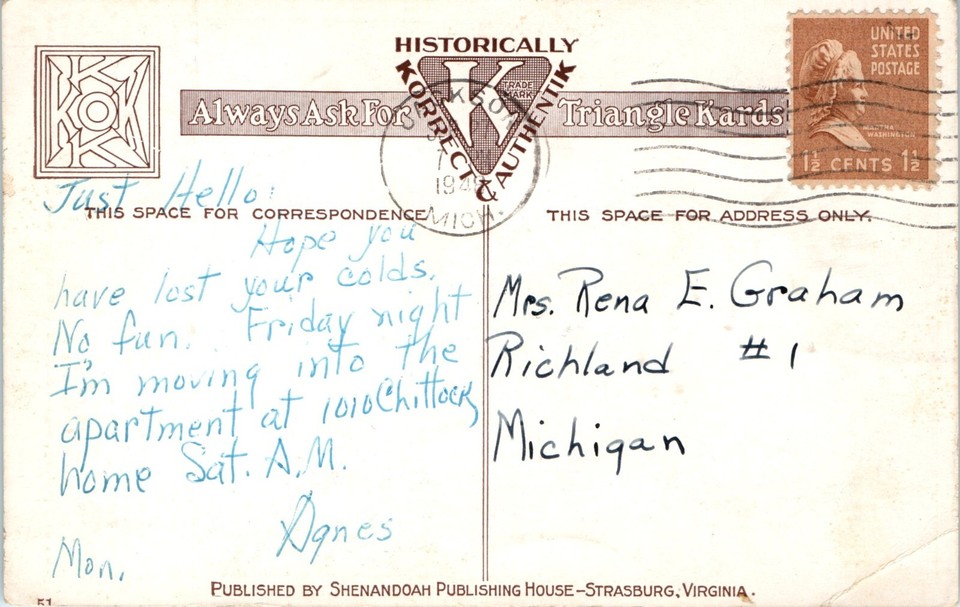 HISTORICALLY
KORRECT & AUTHENTIK
K
TRADE MARK
KOK
Always Ask For
Triangle Kards
MICH.
UNITED
STATES
POSTAGE
MARTHA
WASHINGTON
1½ CENTS 1½
Just Hello:
THIS SPACE FOR CORRESPONDENCE
THIS SPACE FOR ADDRESS ONLY.
Hope you
have lost your colds.
No fun. Friday night
I'm moving into the
apartment at 1010 Chittock,
home Sat. A.M.
Agnes
Mon.
Mrs. Rena E. Graham
Richland #1
Michigan
PUBLISHED BY SHENANDOAH PUBLISHING HOUSE–STRASBURG, VIRGINIA.
51